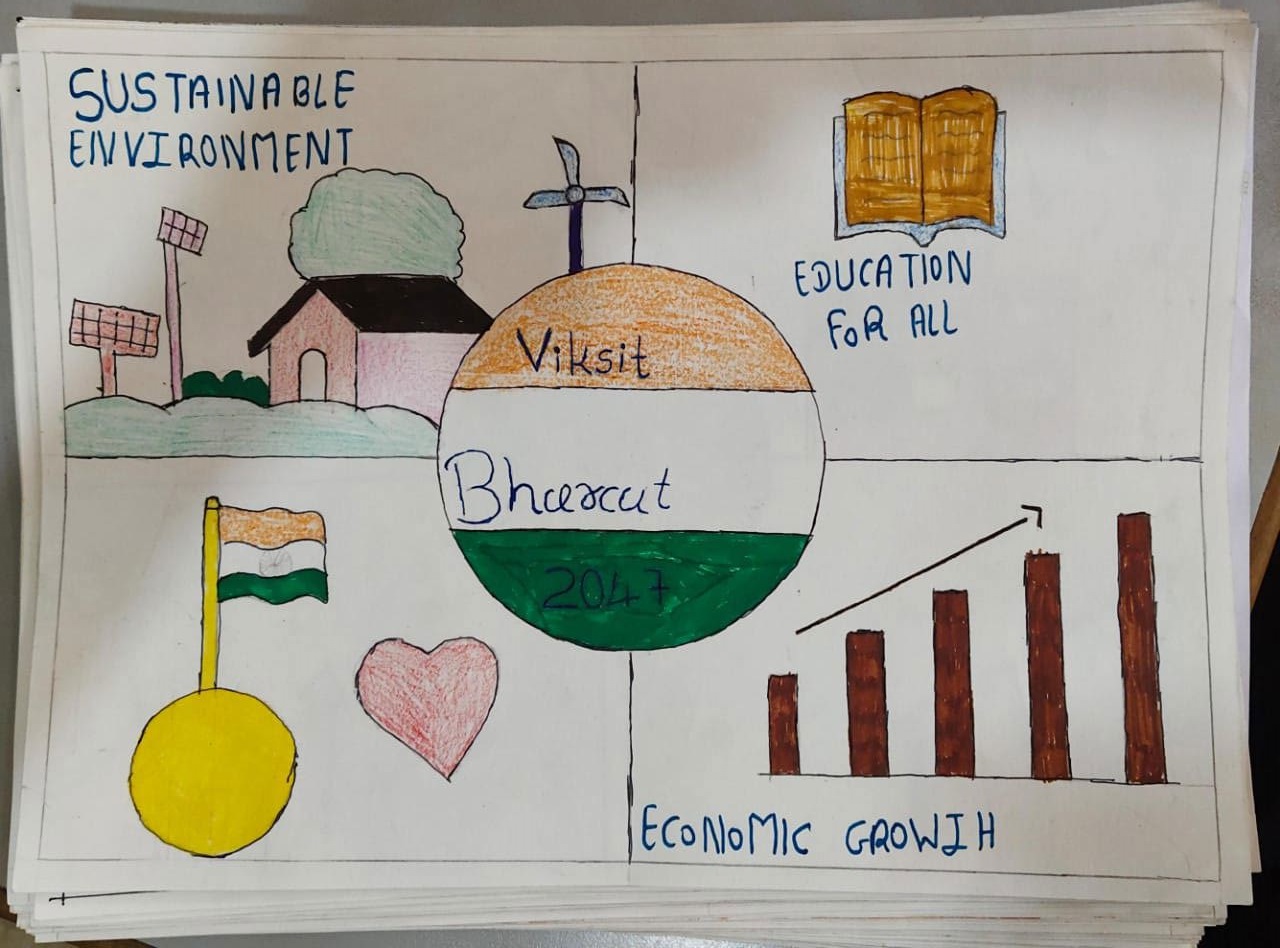 SUSTAINABLE
ENVIRONMENT
EDUCATION
FOR ALL
Viksit
Bharat
2047
ECONOMIC GROWTH